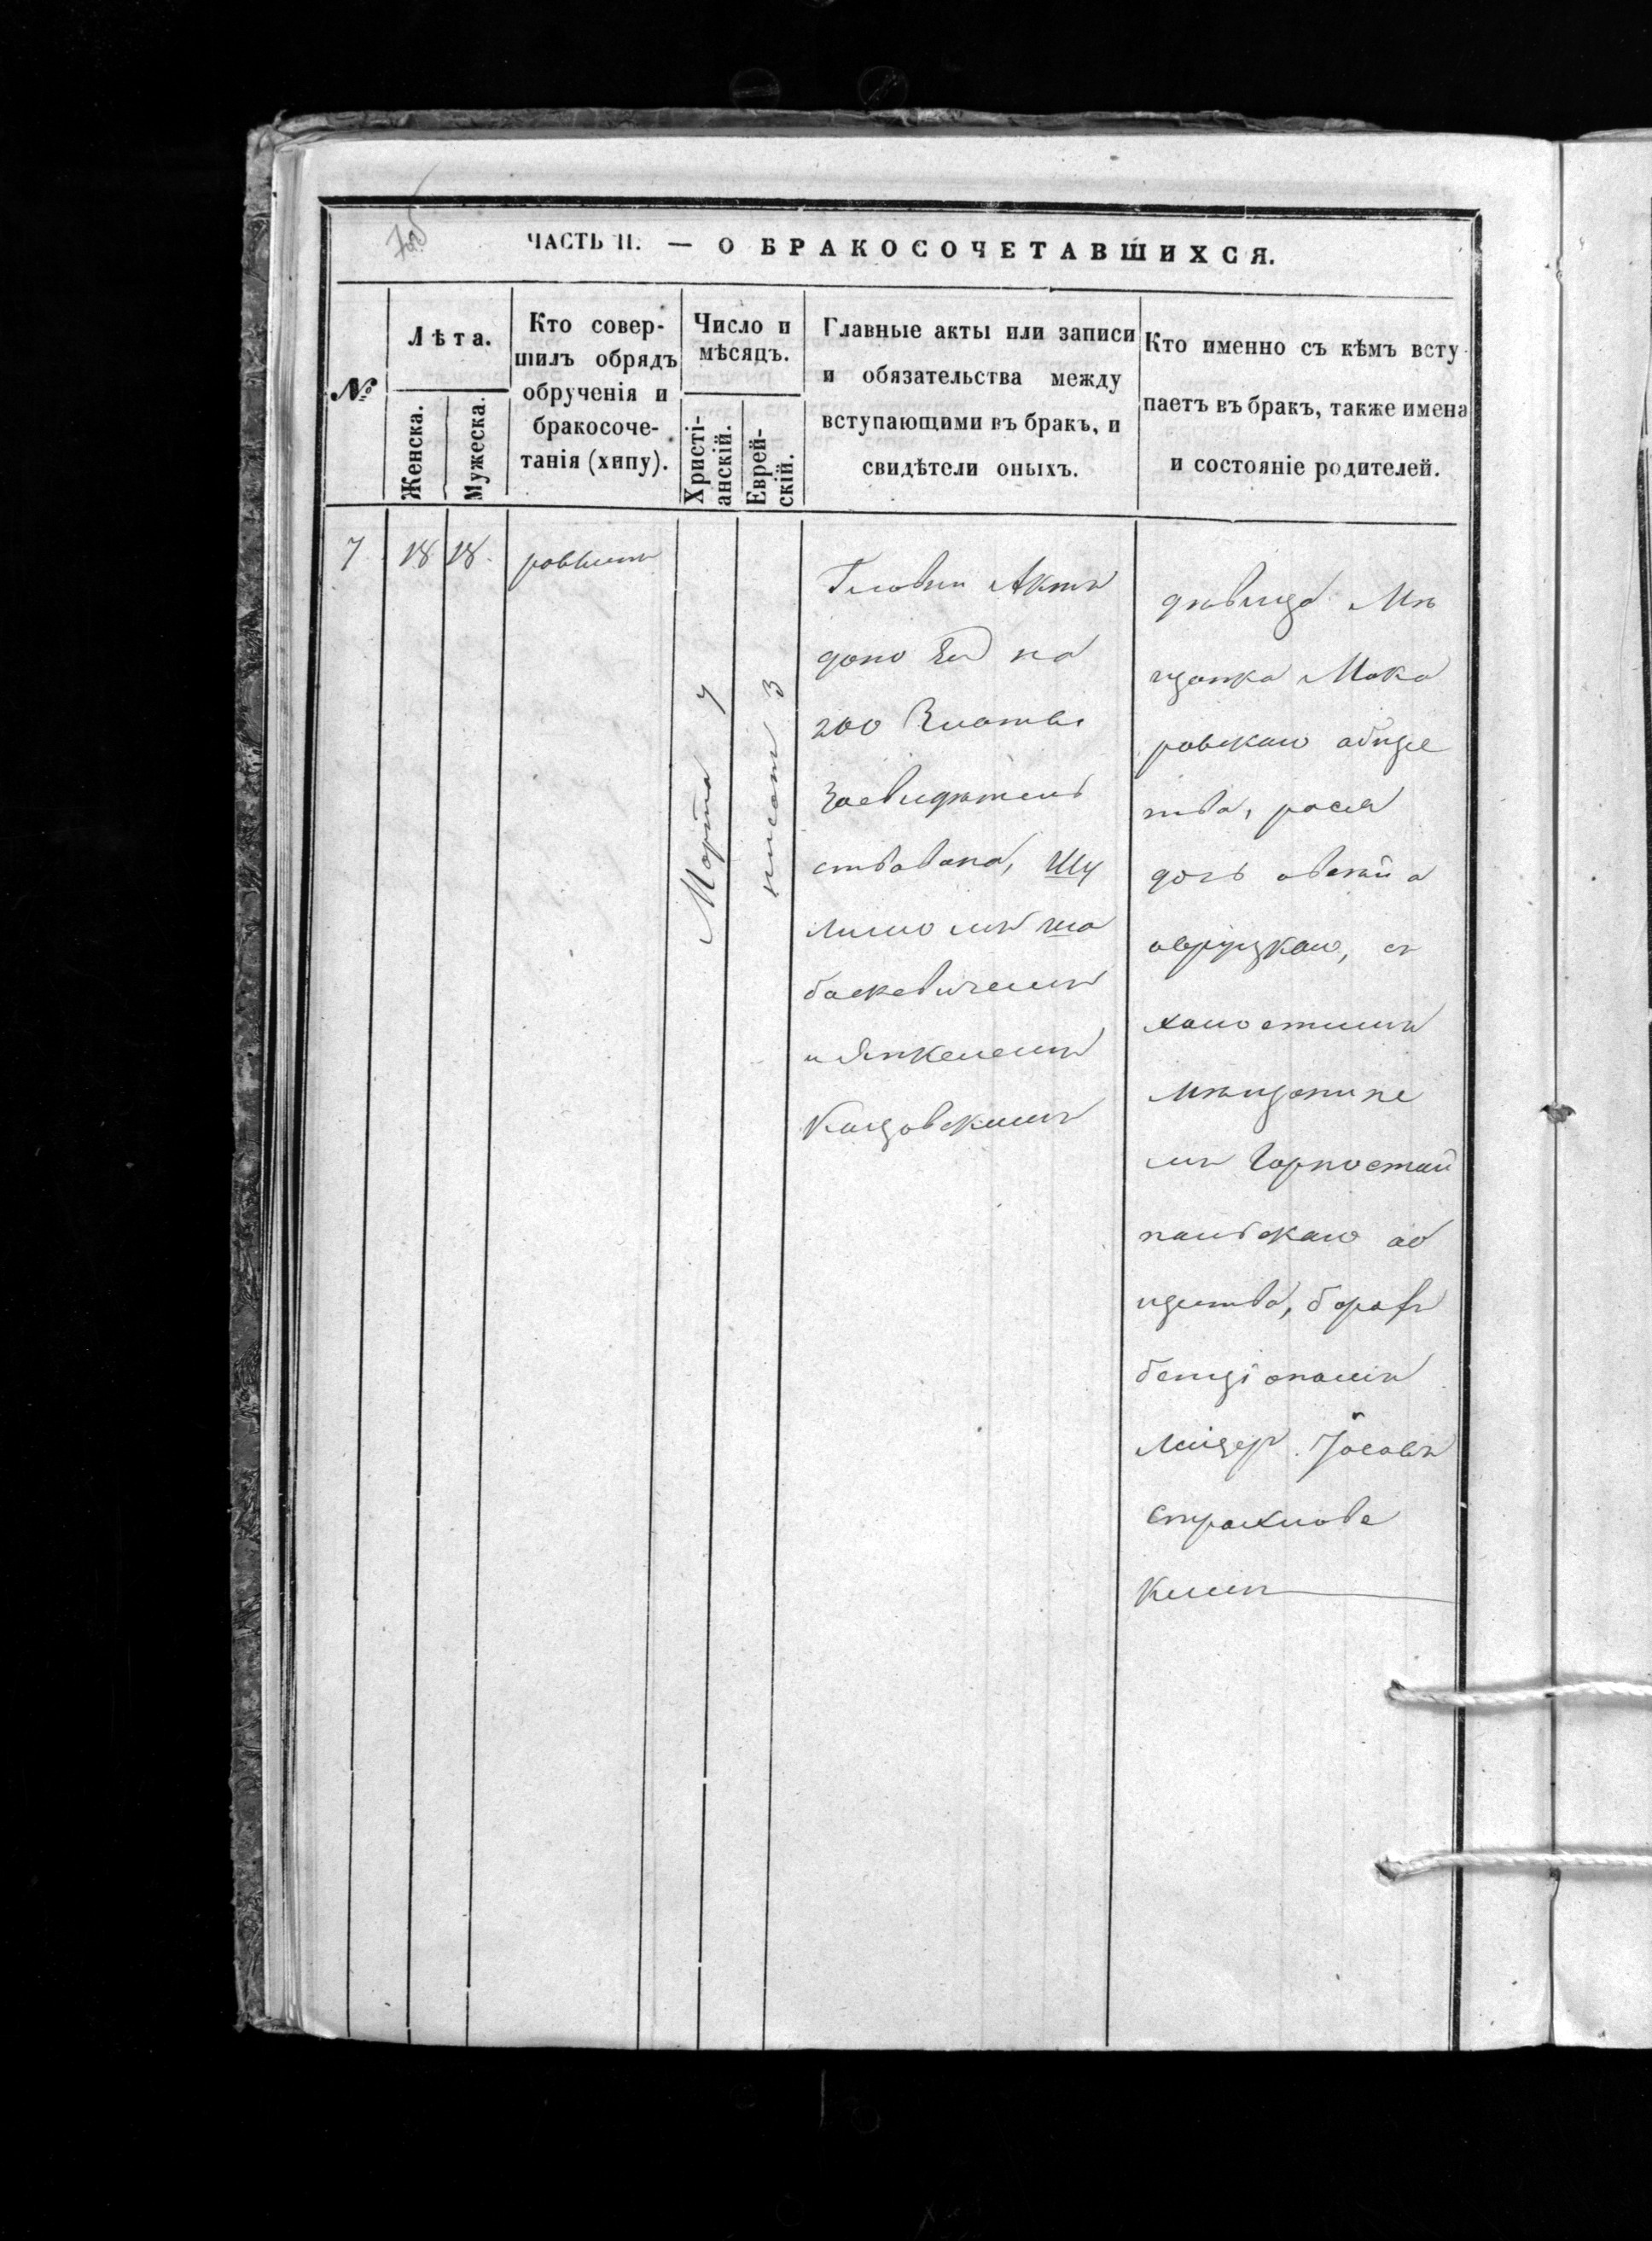 ЧАСТЬ II. — О БРАКОСОЧЕТАВШИХСЯ.
№
Лѣта.
Женска.
Мужеска.
Кто совер-
шилъ обрядъ
обрученія и
бракосоче-
танія (хипу).
Число и
мѣсяцъ.
Христі-
анскій.
Еврей-
скій.
Главные акты или записи
и обязательства между
вступающими въ бракъ, и
свидѣтели оныхъ.
Кто именно съ кѣмъ всту-
паетъ въ бракъ, также имена
и состояніе родителей.
7
18
18
Марта 7
нисонъ 3
Акты
дано ей на
200 Злоты
Засвидѣтель
ствована, Шу
лимомъ ша
баскевичемъ
и Янкелемъ
дѣвица Мѣ
щанка Мака
ровскаго обще
тва, рася
дочь
овруцкаго, съ
холостымъ
мѣщанине
мъ Горностай
польскаго об
щества,
бенціономъ
Страхлове
кимъ